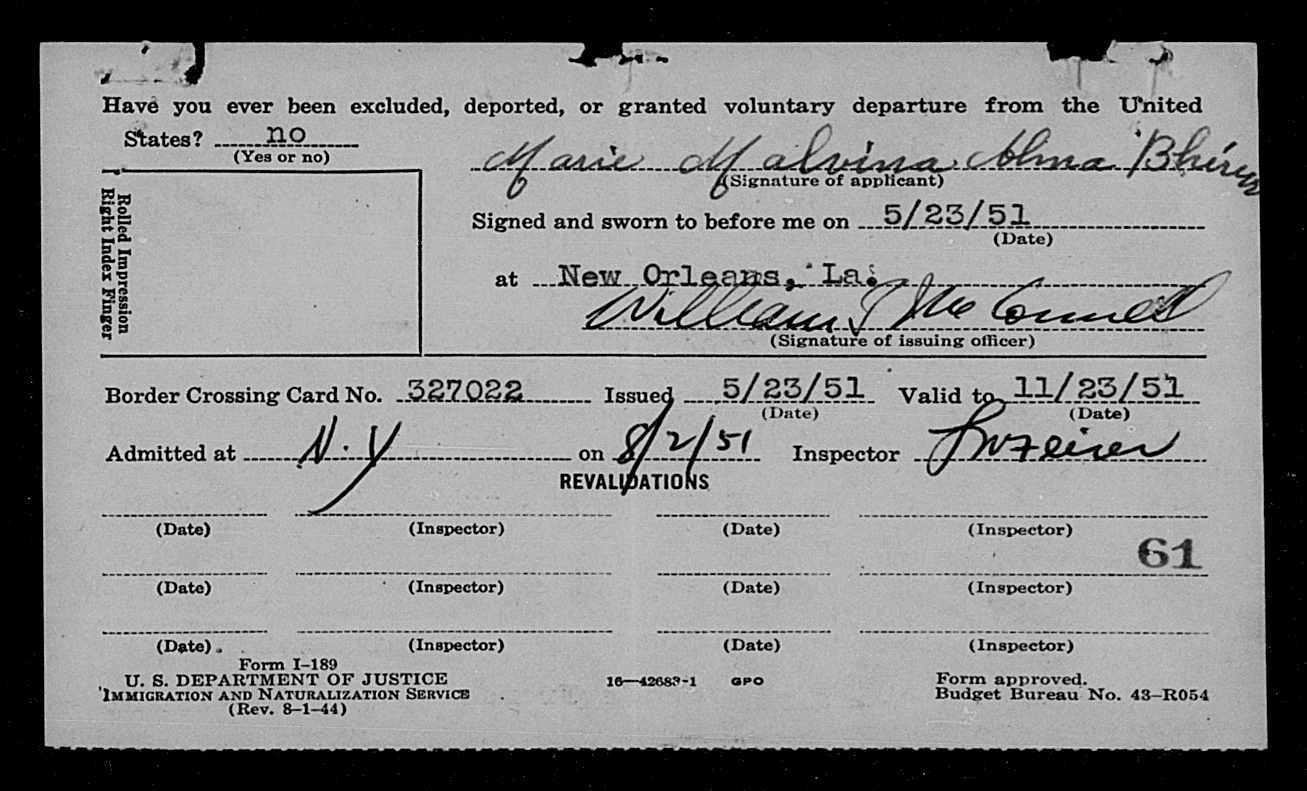 Have you ever been excluded, deported, or granted voluntary departure from the United
States? no
(Yes or no)
Marie Malvina Alma
(Signature of applicant)
Rolled Impression
Right Index Finger
Signed and sworn to before me on 5/23/51
(Date)
at New Orleans, La.
William McConnell
(Signature of issuing officer)
Border Crossing Card No. 327022 Issued 5/23/51 Valid to 11/23/51
(Date) (Date)
Admitted at N.Y on 8/2/51 Inspector
REVALIDATIONS
(Date) (Inspector) (Date) (Inspector)
61
(Date) (Inspector) (Date) (Inspector)
(Date) (Inspector) (Date) (Inspector)
Form I-189
U. S. DEPARTMENT OF JUSTICE
IMMIGRATION AND NATURALIZATION SERVICE
(Rev. 8-1-44)
16—42683-1 GPO
Form approved.
Budget Bureau No. 43-R054